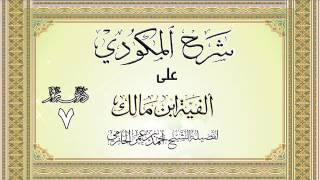 شرح المكودي
على
ألفية ابن مالك
٧
لفضيلة الشيخ أحمد بن عمر الحازمي